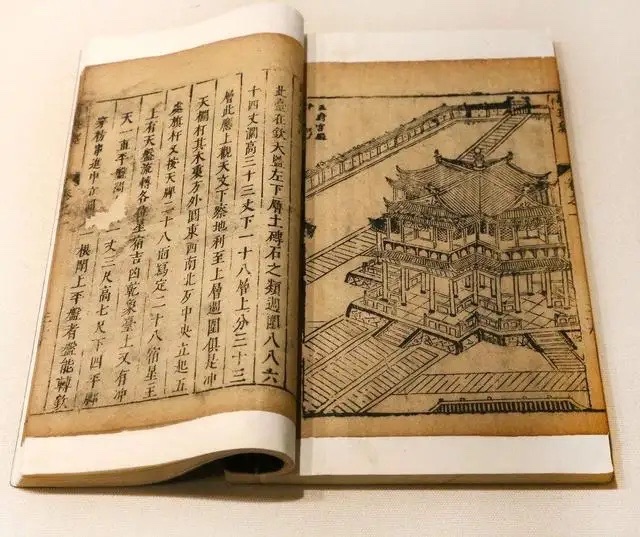 此臺在欽天監左下層土磚石之類週圍八八六
十四丈濶高三十三丈下一十八層上分三十三
層此應上觀天文下察地利至上層週圍俱是冲
天欄杆其木裏方外圓東西南北及中央立起五
處旗杆又按天牌二十八面寫定二十八宿星主
上有天盤流轉各位星宿吉凶乾象臺上又有冲
天一直平盤濶 一丈三尺高七尺下四平脚
穿枋串進中立圓 一根閗上平盤者盤能轉欽